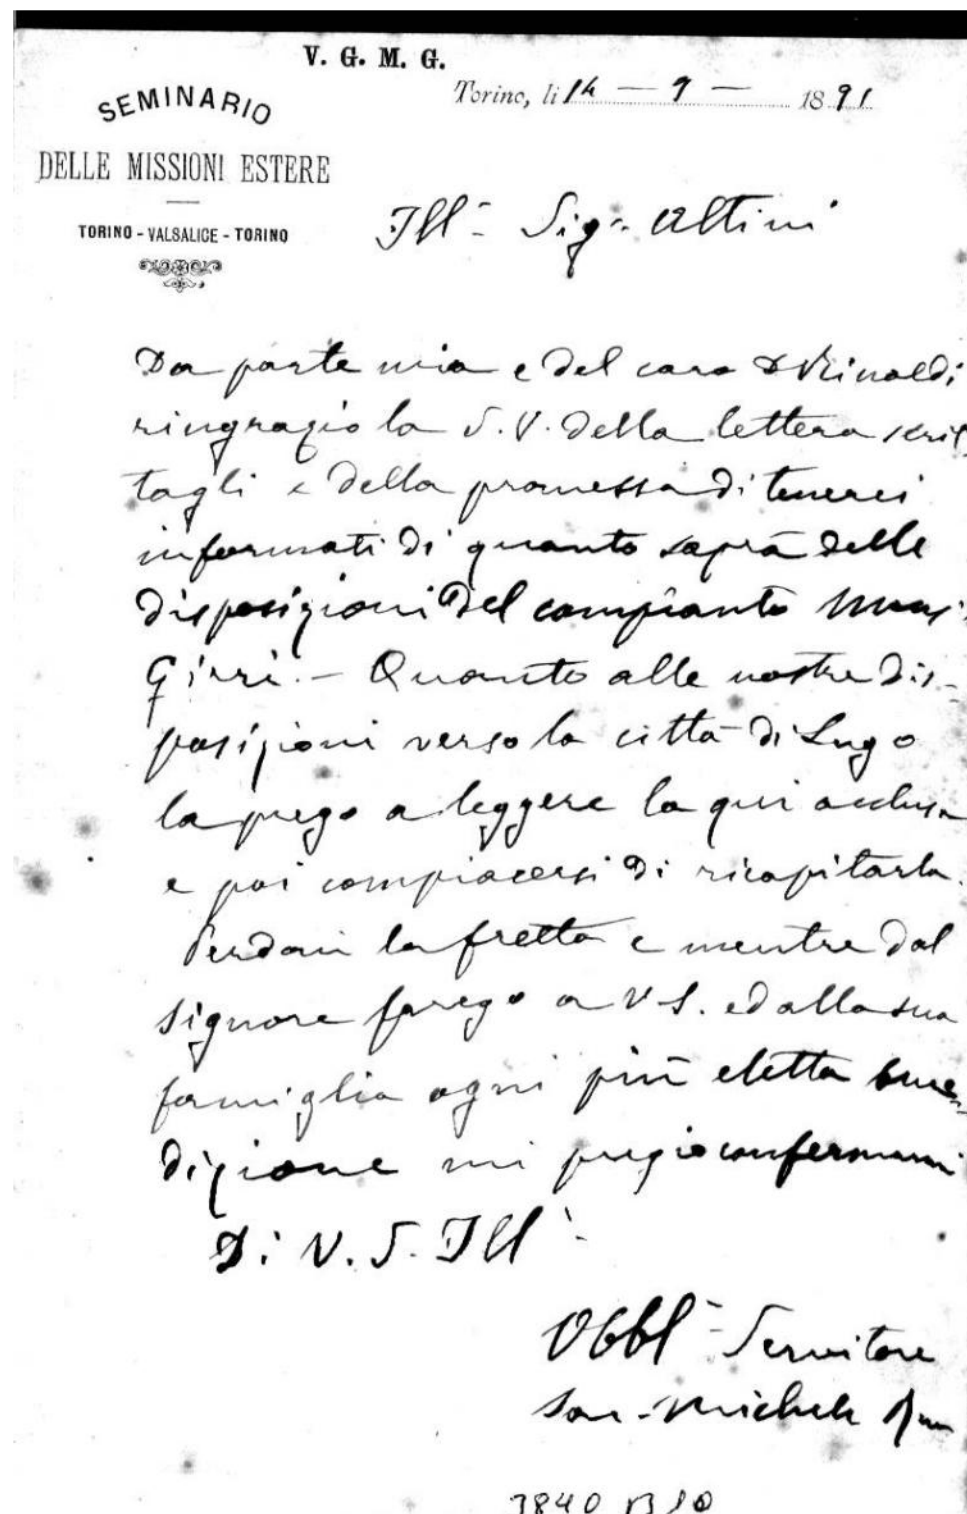 V. G. M. G.
SEMINARIO
DELLE MISSIONI ESTERE
TORINO - VALSALICE - TORINO
Torino, li 14 - 9 - 1891
Ill. Sig. Altini
Da parte mia e del caro D Rinaldi
ringrazio la S. V. della lettera scrit
tagli e della promessa di tenerci
informati di quanto saprà delle
disposizioni del compianto Mons.
Girri. - Quanto alle nostre dis-
posizioni verso la città di Lugo
la prego a leggere la qui acclusa
e poi compiacersi di ricapitarla.
Perdoni la fretta e mentre dal
Signore prego a V S. ed alla sua
famiglia ogni più eletta bene-
dizione mi pregio confermarmi
Di V. S. Ill
Obbl Servitore
Sac. Michele
3840 B10